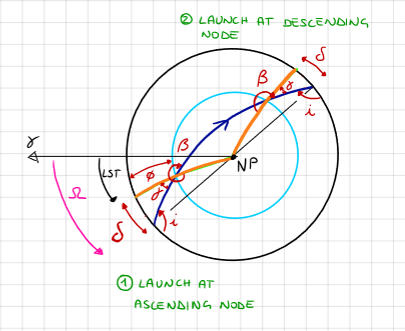 ② LAUNCH AT DESCENDING
NODE
δ
β
γ
i
β
NP
γ
LST
ϕ
Ω
γ
i
δ
① LAUNCH AT
ASCENDING NODE